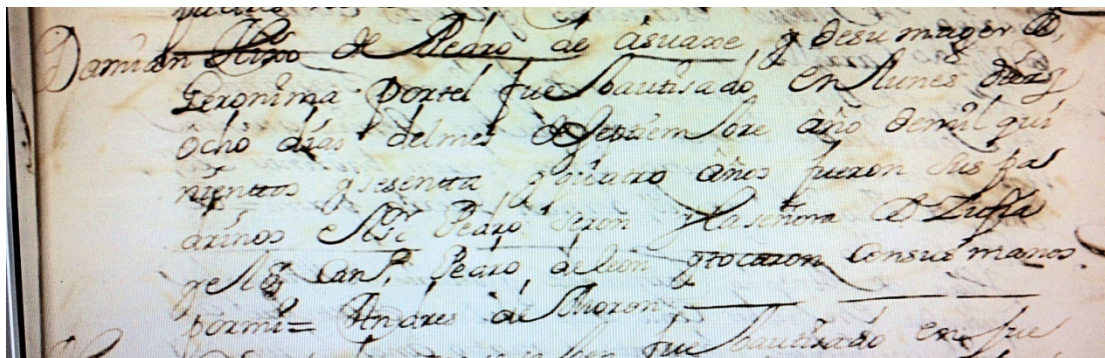 Damian Hijo de Pedro de asuaxe, y de su muger D,
Geronima Portel fue bautisado en lunes diez y
ocho dias del mes de Septiembre año de mil qui
nientos y sesenta y quatro años fueron sus pa
drinos el Pedro Seron y la señora D
Pedro de leon y tocaron con sus manos
por mi = Andres de Moron
fue bautisado en